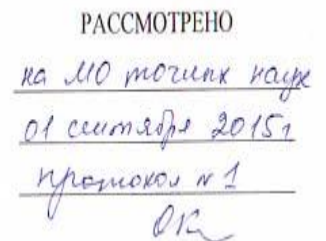 РАССМОТРЕНО
на МО точных наук
01 сентября 2015г
протокол № 1